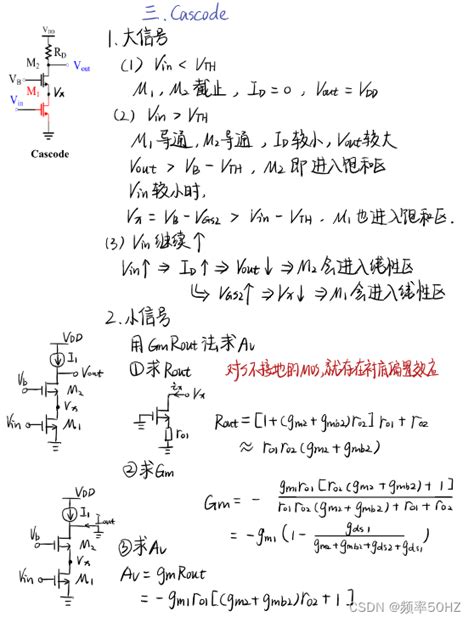 三. Cascode
V_DD
R_D
M_2
V_out
V_B
V_x
M_1
V_in
Cascode
1. 大信号
(1) Vin < V_TH
M_1, M_2 截止, I_D = 0, Vout = V_DD
(2) Vin > V_TH
M_1 导通, M_2 导通, I_D 较小, Vout 较大
Vout > V_B - V_TH, M_2 即进入饱和区
Vin 较小时,
V_x = V_B - V_GS2 > Vin - V_TH, M_1 也进入饱和区.
(3) Vin 继续↑
Vin↑ ⇒ I_D↑ ⇒ Vout↓ ⇒ M_2 会进入线性区
↳ V_GS2↑ ⇒ V_x↓ ⇒ M_1 会进入线性区
2. 小信号
用 GmRout 法求 Av
V_DD
I_1
Vout
V_b
M_2
V_x
Vin
M_1
① 求 Rout 对S不接地的MOS, 就存在衬底偏置效应
V_x
r_o1
Rout = [1 + (g_m2 + g_mb2) r_o2] r_o1 + r_o2
≈ r_o1 r_o2 (g_m2 + g_mb2)
② 求 Gm
Gm = - g_m1 r_o1 [r_o2 (g_m2 + g_mb2) + 1] / r_o1 r_o2 (g_m2 + g_mb2) + r_o1 + r_o2
= - g_m1 (1 - g_ds1 / g_m2 + g_mb2 + g_ds2 + g_ds1)
V_DD
I_1
Iout
V_b
M_2
V_x
Vin
M_1
③ 求 Av
Av = gmRout
= - g_m1 r_o1 [(g_m2 + g_mb2) r_o2 + 1]
CSDN @频率50HZ